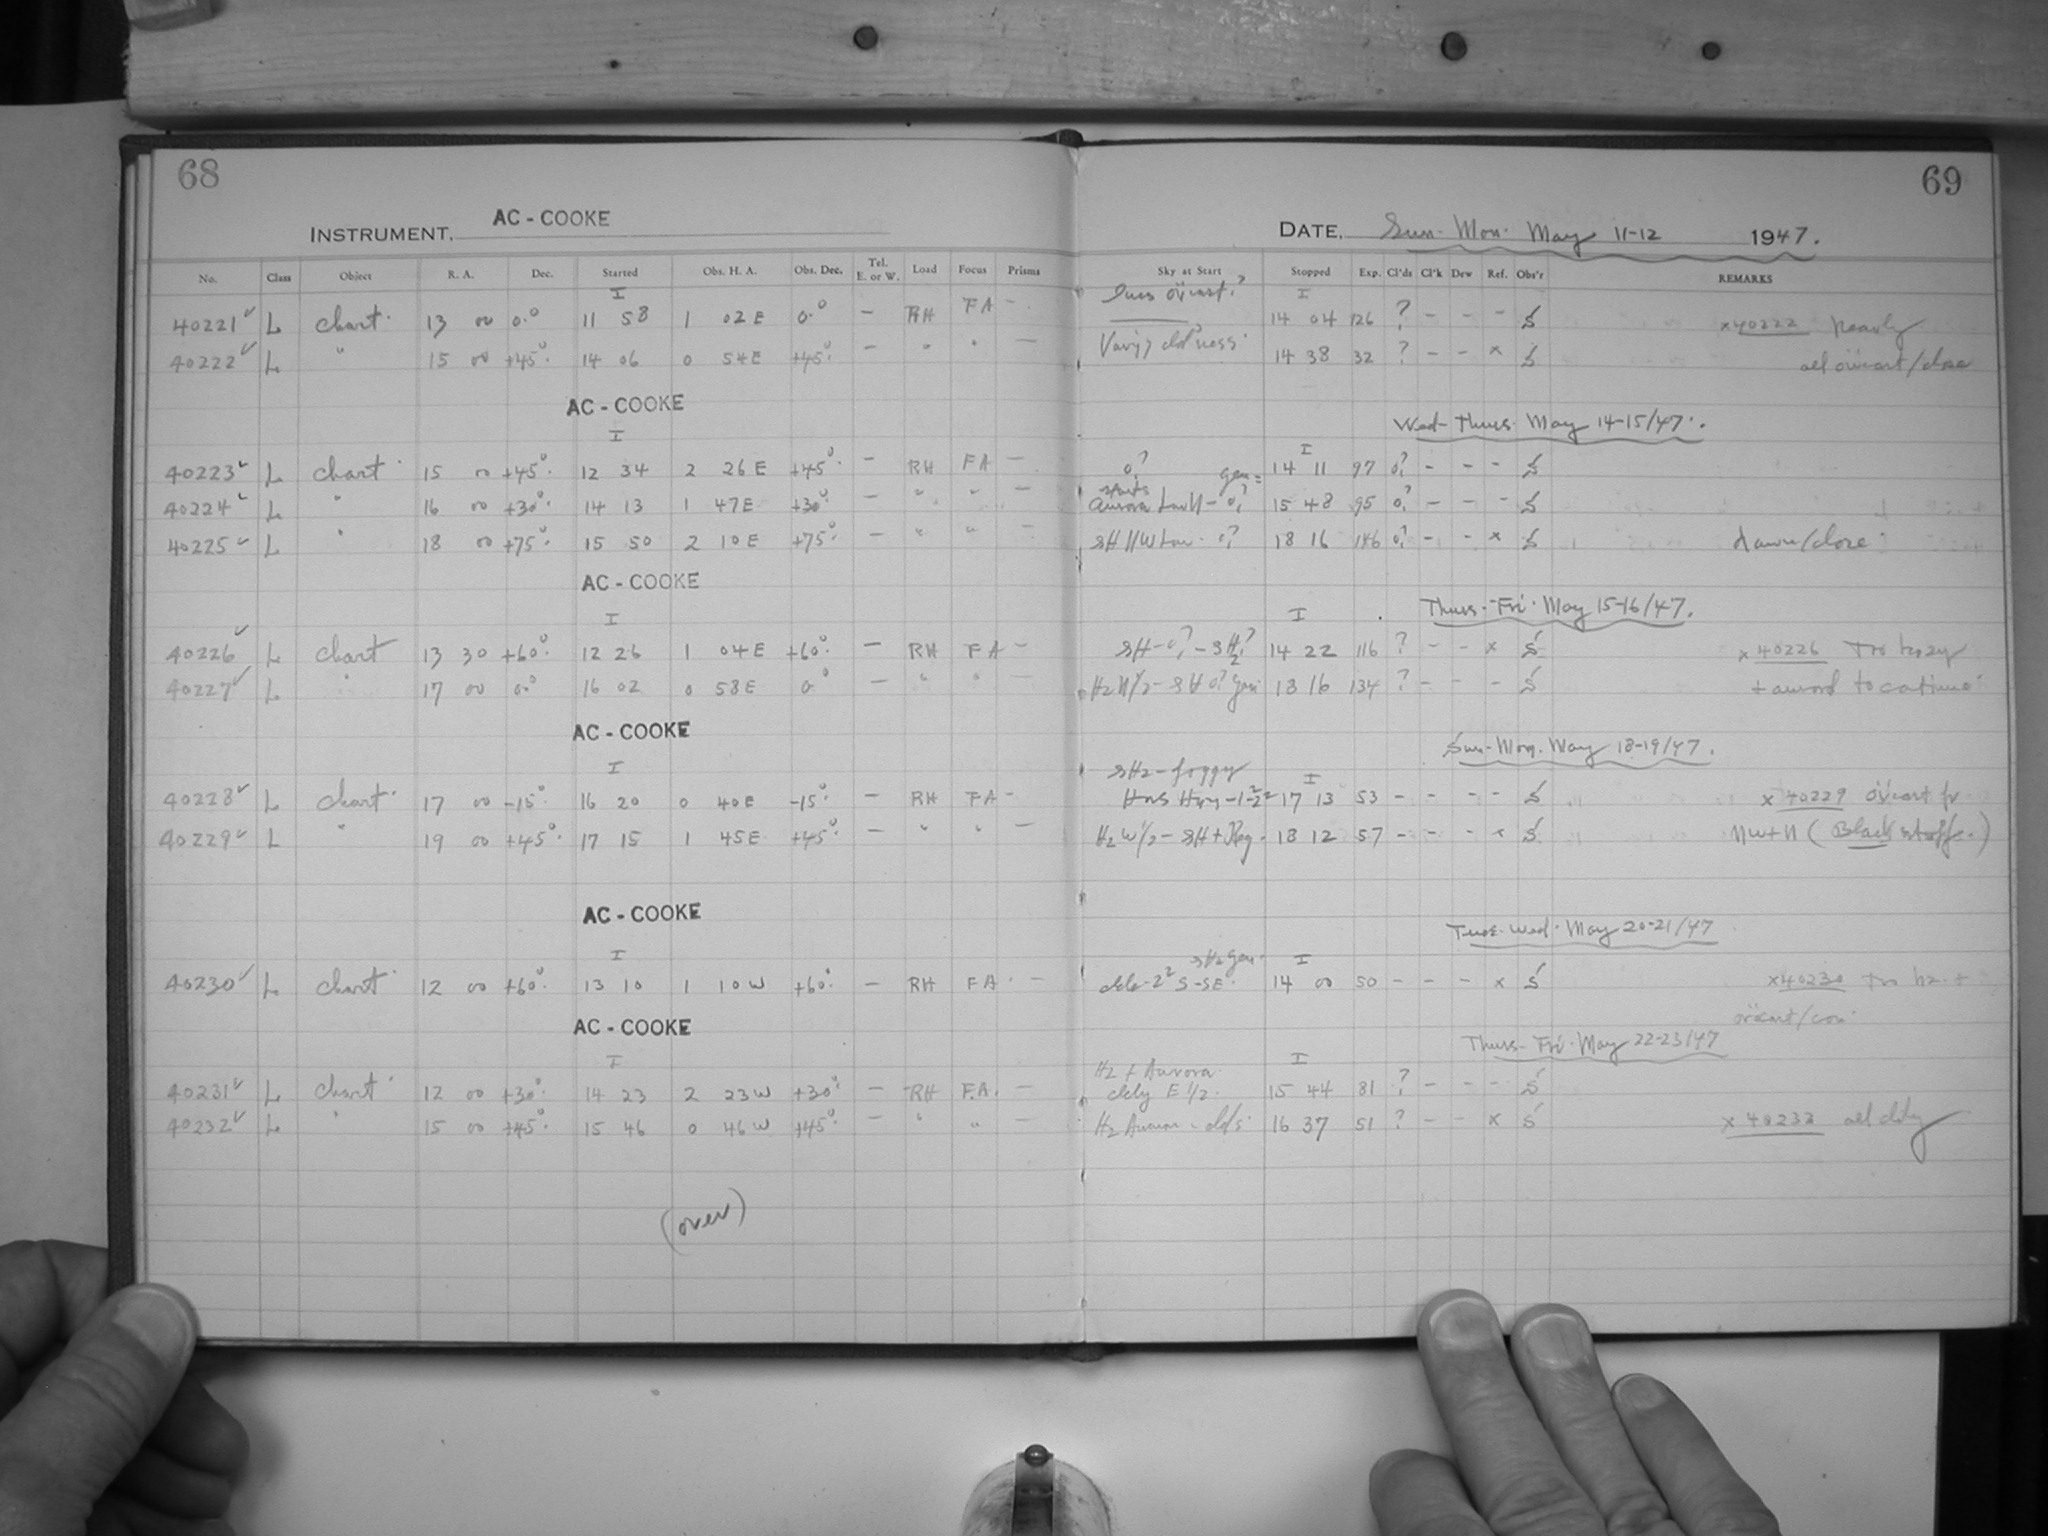 68
INSTRUMENT. AC - COOKE
No. Class Object R. A. Dec. Started Obs. H. A. Obs. Dec. Tel. E. or W. Load Focus Prisms
I
40221 L chart 13 00 0° 11 58 1 02 E 0° - RH FA -
40222 L " 15 00 +45° 14 06 0 54 E +45° - " " -
AC - COOKE
I
40223 L chart 15 00 +45° 12 34 2 26 E +45° - RH FA -
40224 L " 16 00 +30° 14 13 1 47 E +30° - " " -
40225 L " 18 00 +75° 15 50 2 10 E +75° - " " -
AC - COOKE
I
40226 L chart 13 30 +60° 12 26 1 04 E +60° - RH FA -
40227 L " 17 00 0° 16 02 0 58 E 0° - " " -
AC - COOKE
I
40228 L chart 17 00 -15° 16 20 0 40 E -15° - RH FA -
40229 L " 19 00 +45° 17 15 1 45 E +45° - " " -
AC - COOKE
I
40230 L chart 12 00 +60° 13 10 1 10 W +60° - RH FA -
AC - COOKE
I
40231 L chart 12 00 +30° 14 23 2 23 W +30° - RH F.A. -
40232 L " 15 00 +45° 15 46 0 46 W +45° - " " -
(over)
69
DATE. Sun. Mon. May 11-12 1947.
Sky at Start Stopped Exp. Cl'ds Cl'k Dew Ref. Obs'r REMARKS
I
14 04 126 ? - - - S x 40222 nearly
14 38 32 ? - - x S all overcast/close
Wed-Thurs. May 14-15/47.
I
0? 14 11 97 0? - - - S
starts
Aurora Low N - 0? 15 48 95 0? - - - S
SH NW Low 0? 18 16 146 0? - - x S dawn/close
Thurs.-Fri. May 15-16/47.
I
SH-0?-SH? 14 22 116 ? - - x S x 40226 Too hazy
Hz N 1/2 - SH 0? gen 18 16 134 ? - - - S + to continue
Sun-Mon. May 18-19/47.
SHz - foggy
I
17 13 53 - - - - S x 40229 fr
Hz W 1/2 - SH + 18 12 57 - - - x S NW + N (Black)
Tues-Wed. May 20-21/47
SHz gen.
I
S-SE. 14 00 50 - - - x S x 40230 Too hz. +
Thurs-Fri. May 22-23/47
Hz + Aurora
I
cldy E 1/2. 15 44 81 ? - - - S
Hz Aurora - clds 16 37 51 ? - - x S x 40232 all cldy